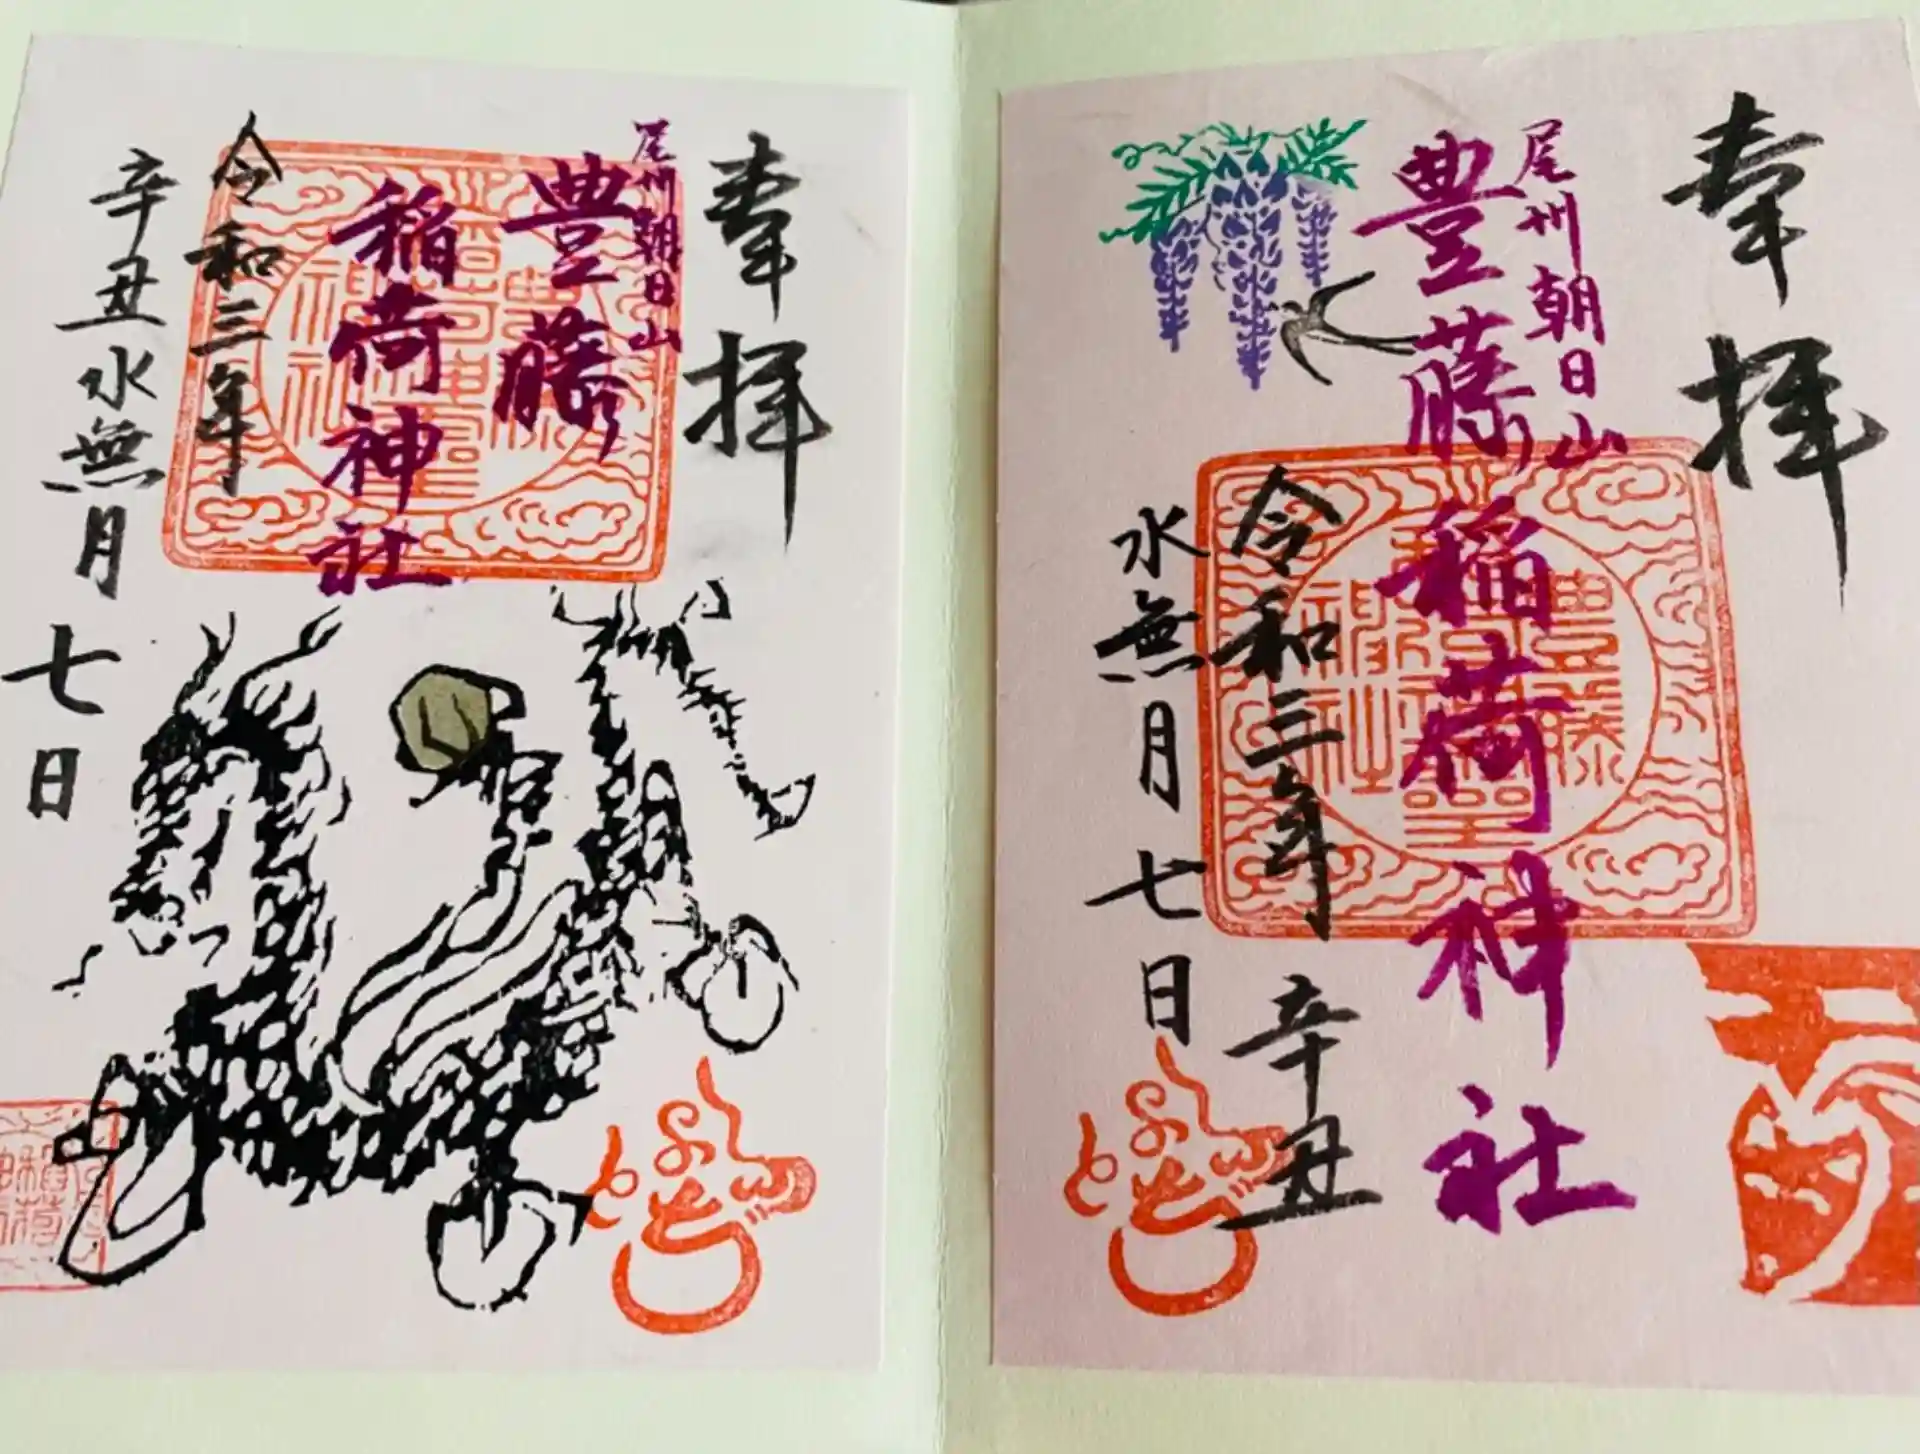 奉拝
尾州朝日山
豊藤稲荷神社
令和三年 辛丑
水無月七日
奉拝
尾州朝日山
豊藤
稲荷神社
令和三年
辛丑水無月七日